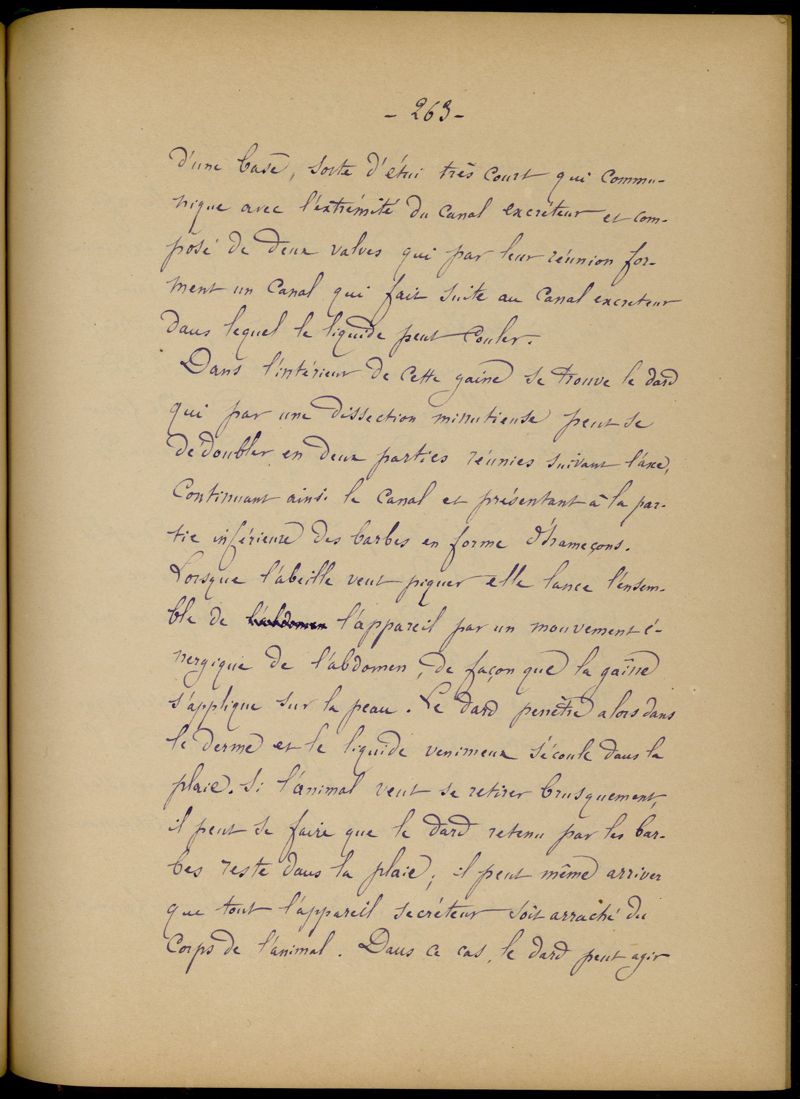 - 263 -
d'une base, sorte d'étui très court qui commu-
nique avec l'extrémité du canal excréteur et com-
posé de deux valves qui par leur réunion for-
ment un canal qui fait suite au canal excreteur
dans lequel le liquide peut couler.
Dans l'intérieur de cette gaîne se trouve le dard
qui par une dissection minutieuse peut se
dedoubler en deux parties réunies suivant l'axe,
continuant ainsi le canal et présentant à la par-
tie inférieure des barbes en forme d'hameçons.
Lorsque l'abeille veut piquer elle lance l'ensem-
ble de l'abdomen l'appareil par un mouvement é-
nergique de l'abdomen, de façon que la gaîne
s'applique sur la peau. Le dard penêtre alors dans
le derme et le liquide venimeux s'écoule dans la
plaie. Si l'animal veut se retirer brusquement,
il peut se faire que le dard retenu par les bar-
bes reste dans la plaie; il peut même arriver
que tout l'appareil secréteur soit arraché du
corps de l'animal. Dans ce cas, le dard peut agir